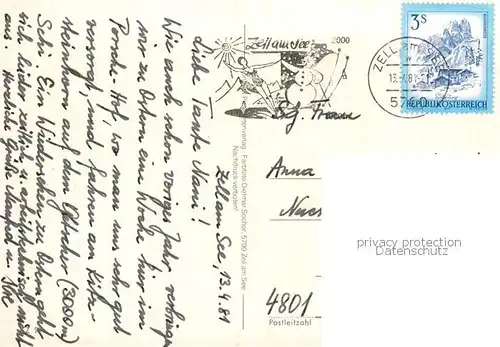 Zell am See, 13.4.81
Liebe Tante Nani!
Wie auch schon voriges Jahr, verbringen
wir zu Ostern eine Woche bei im
Hof, wo man uns sehr gut
versorgt, und fahren am Kitz-
steinhorn auf dem Gletscher (3000m)
Schi. Ein Wiedersehen zu Ostern geht
sich leider zeitlich u. arbeitstechnisch nicht
aus. Herzliche Grüße Manfred u.
Farbfoto Dietmar Sochor, 5700 Zell am See
Nachdruck verboten!
2000
Zell am See
ZELL am SEE
13.4.81
5700
3S
REPUBLIK ÖSTERREICH
Sg. Frau
Anna
4801
Postleitzahl
privacy protection
Datenschutz